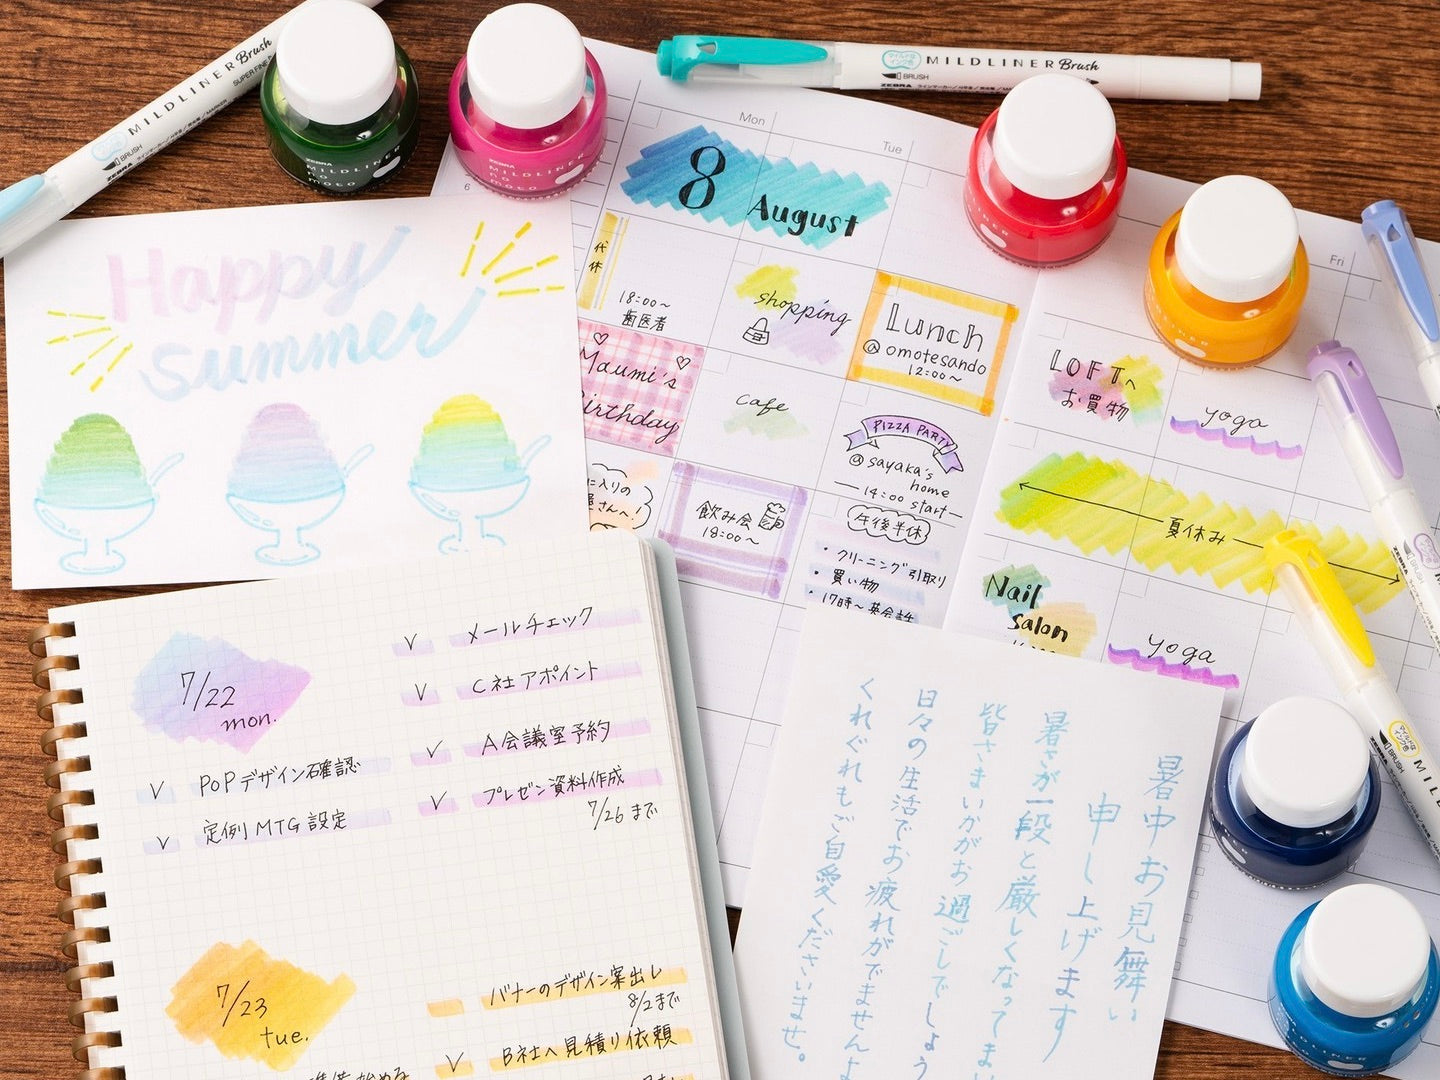 MILDLINER Brush
BRUSH
ZEBRA
MILDLINER
no
moto
ZEBRA
MILDLINER
no
moto
MILDLINER Brush
BRUSH
ZEBRA
Happy
Summer
Mon
Tue
Fri
6
8 August
代休
18:00〜
歯医者
shopping
Lunch
@omotesando
12:00〜
Mayumi's
Birthday
cafe
PIZZA PARTY
@sayaka's
home
14:00 start
LOFTへ
お買物
yoga
飲み会
18:00〜
午後半休
・クリーニング引取り
・買い物
・17時〜英会話
夏休み
Nail
salon
yoga
7/22
mon.
✓ POPデザイン確認
✓ 定例MTG設定
✓ メールチェック
✓ C社アポイント
✓ A会議室予約
✓ プレゼン資料作成
7/26まで
7/23
tue.
バナーのデザイン案出し
8/2まで
✓ B社へ見積り依頼
暑中お見舞い
申し上げます
暑さが一段と厳しくなってまい
皆さまいかがお過ごしでしょう
日々の生活でお疲れがでませんよ
くれぐれもご自愛くださいませ。